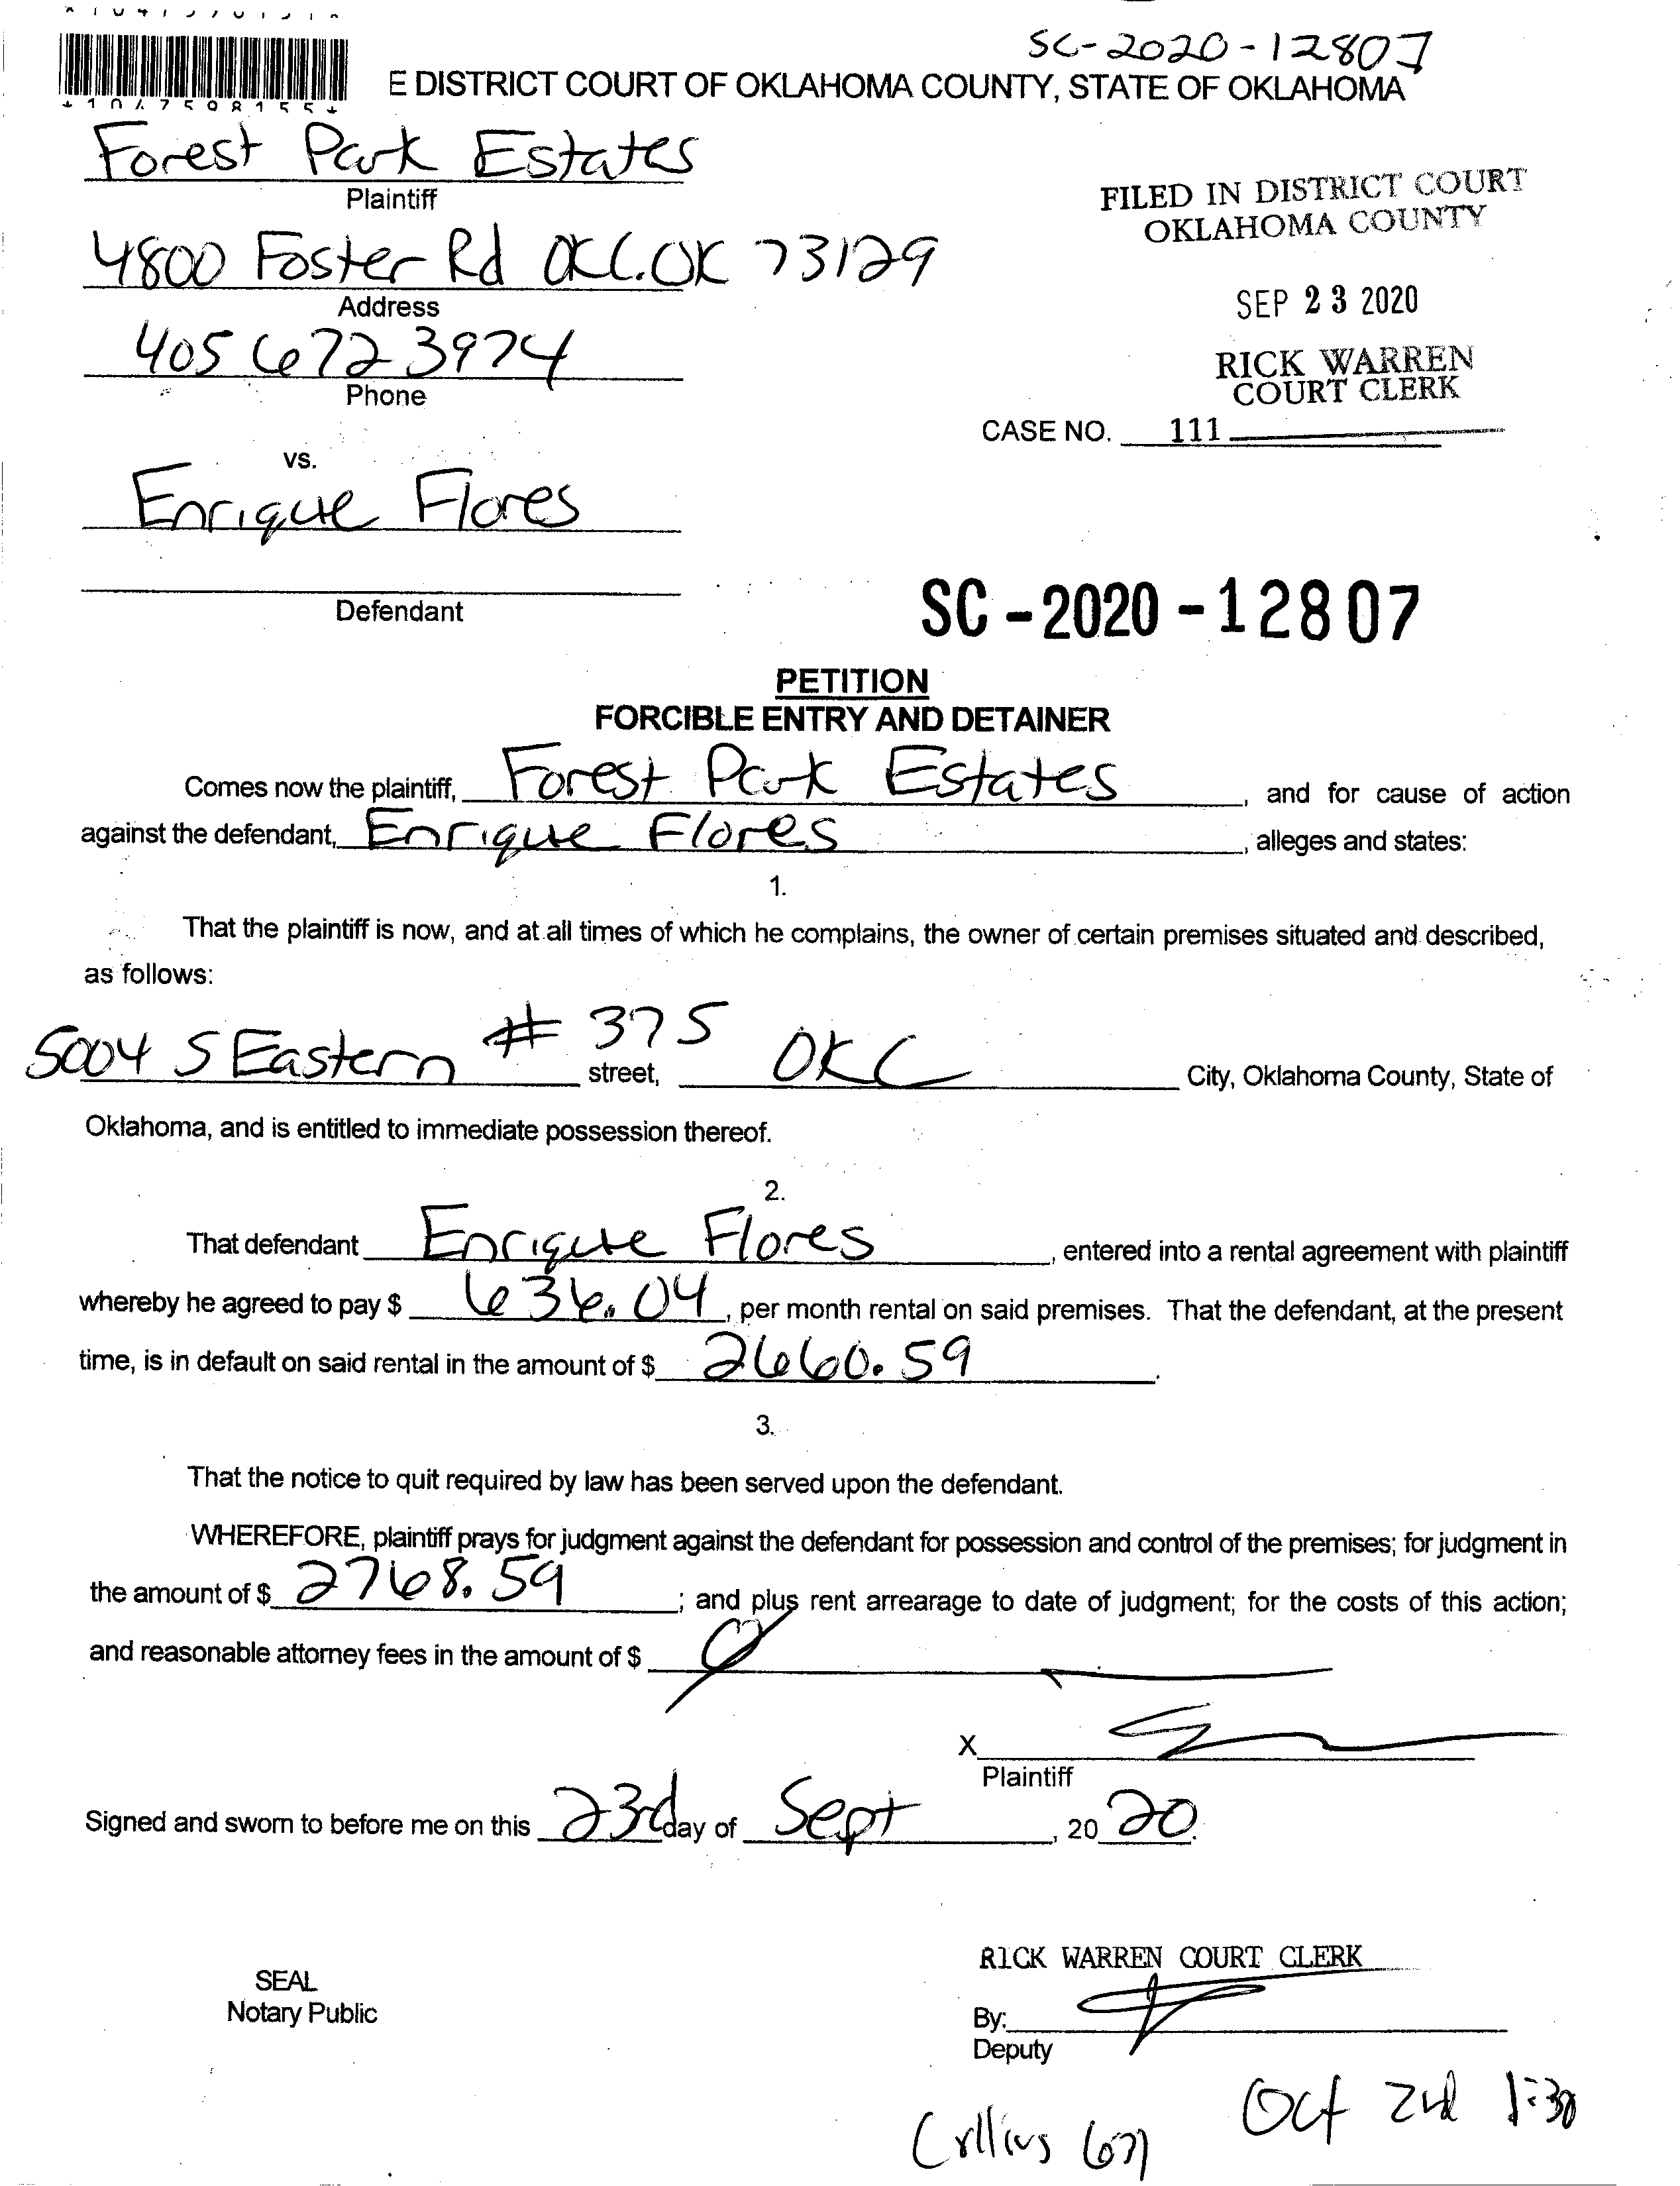 SC-2020-12807
E DISTRICT COURT OF OKLAHOMA COUNTY, STATE OF OKLAHOMA
Forest Park Estates
Plaintiff
FILED IN DISTRICT COURT
OKLAHOMA COUNTY
4800 Foster Rd OKC.OK 73129
Address
SEP 23 2020
405 672 3974
Phone
RICK WARREN
COURT CLERK
CASE NO. 111
vs.
Enrique Flores
Defendant
SC-2020-12807
PETITION
FORCIBLE ENTRY AND DETAINER
Comes now the plaintiff, Forest Park Estates, and for cause of action
against the defendant, Enrique Flores, alleges and states:
1.
That the plaintiff is now, and at all times of which he complains, the owner of certain premises situated and described,
as follows:
5004 S Eastern # 375 street, OKC City, Oklahoma County, State of
Oklahoma, and is entitled to immediate possession thereof.
2.
That defendant Enrique Flores, entered into a rental agreement with plaintiff
whereby he agreed to pay $ 636.04, per month rental on said premises. That the defendant, at the present
time, is in default on said rental in the amount of $ 2660.59.
3.
That the notice to quit required by law has been served upon the defendant.
WHEREFORE, plaintiff prays for judgment against the defendant for possession and control of the premises; for judgment in
the amount of $ 2768.59; and plus rent arrearage to date of judgment; for the costs of this action;
and reasonable attorney fees in the amount of $ Ø
X
Plaintiff
Signed and sworn to before me on this 23rd day of Sept, 20 20.
RICK WARREN COURT CLERK
SEAL
Notary Public
By:
Deputy
Oct 2nd 1:30
Collins